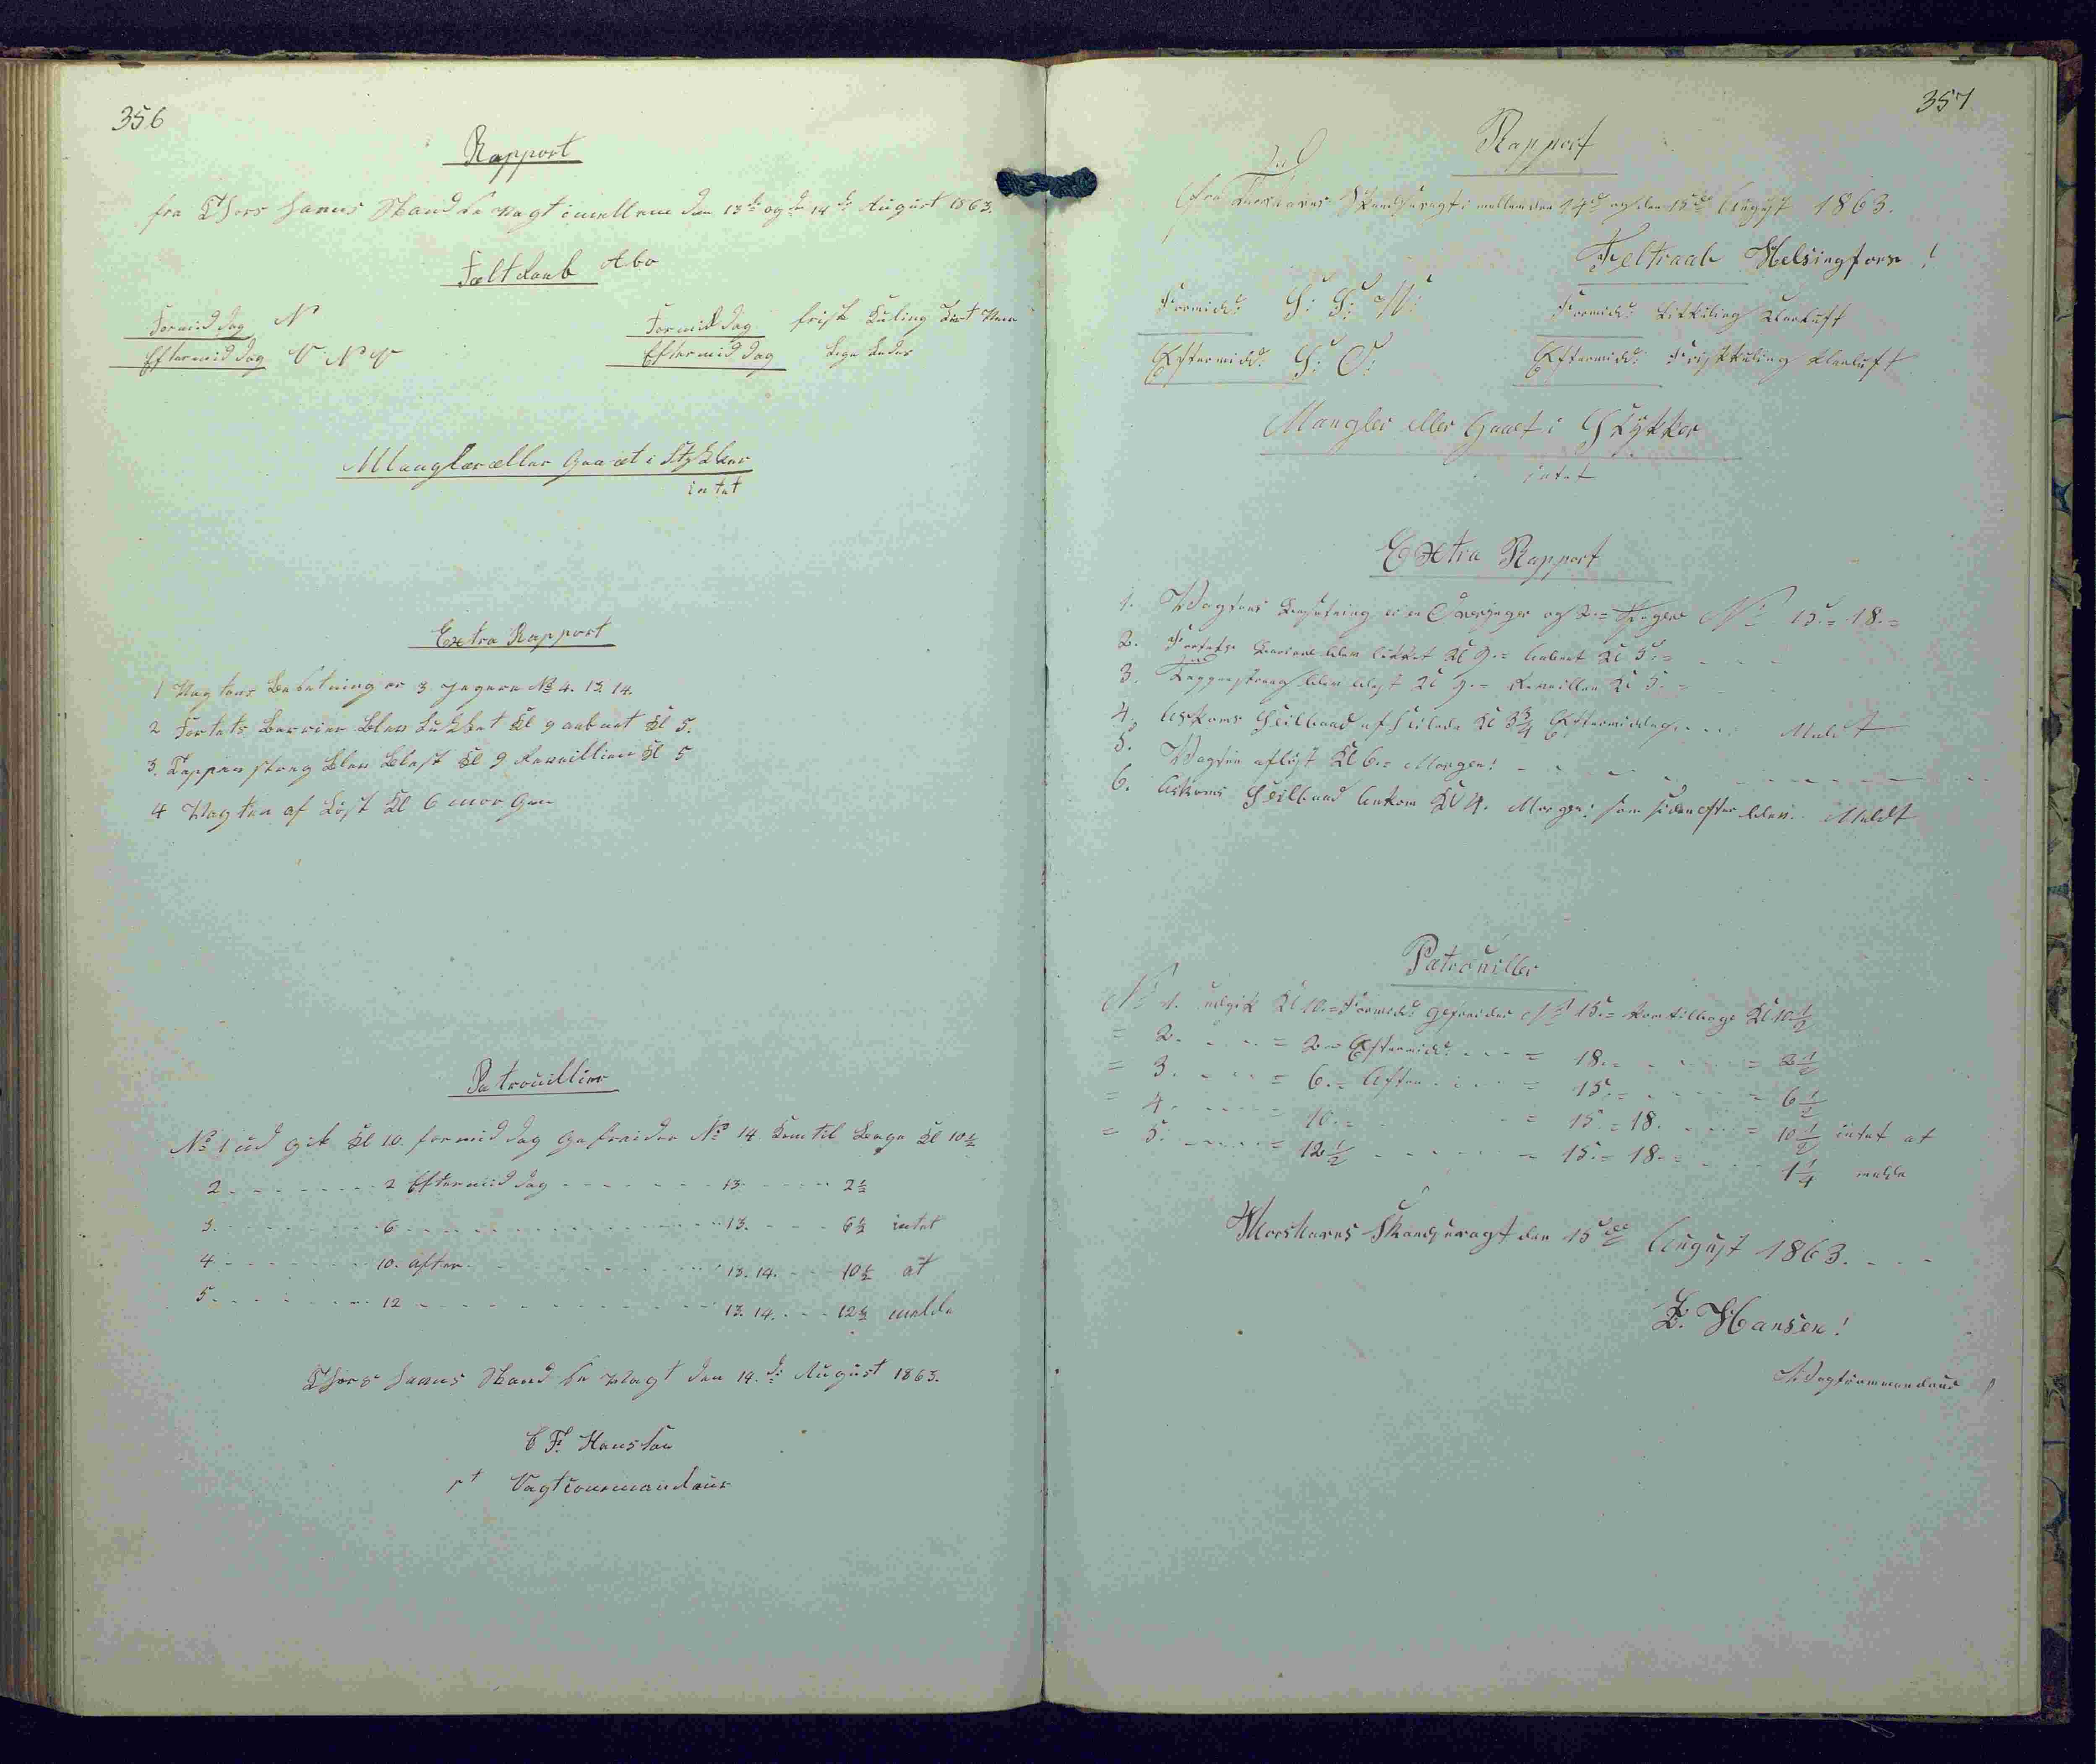 356
Rapport
fra Thors havns Skandse Vagt imellem den 13de og den 14de August 1863.
Feltraab Abo
Formiddag N Formiddag frisk Kuling
Eftermiddag V N V Eftermiddag lige Leder
Mangler eller Gaaet i Stykker
intet
Extra Rapport
1 Vagtens besetning er 3 Jegere No 4. 13. 14.
2 Fortets Barrier blev Lukket Kl 9 aabnet Kl 5.
3. Tappenstreg blev blæst Kl 9 Revellien Kl 5
4 Vagten af Løst Kl 6 morgen
Patrouiller
No 1 ud gik Kl 10. formiddag Gefreider No 14 kom til bage Kl 10½
2 - - - - 2 Eftermiddag - - - - 13 - - - - 2½
3. - - - - 6 - - - - 13. - - - - 6½ intet
4 - - - - 10. aften - - - - 13. 14. - - - 10½ at
5 - - - - 12 - - - - 13. 14. - - - 12½ melde
Thors havns Skandse Vagt den 14.de August 1863.
C F. Hansen
Vagtcommandeur
357
Rapport
fra Thorshavns Skandsevagt imellem den 14de og den 15de August 1863.
Feltraab Helsingfors!
Formidd: S: S: W: Formidd: Kuling Klarluft
Eftermidd: S: O: Eftermidd: Friskkuling Klarluft
Mangler eller Gaaet i Stykker
intet
Extra Rapport
1. Vagtens Besetning er en Overjæger og 2 Jægere No 15. 18.
2. Fortets Barriere blev lukket Kl 9. aabnet Kl 5.
3. Tappenstreg blev blæst Kl 9. Reveillen Kl 5.
4. Ankoms Seilbaad afseilede Kl 3¾ Eftermiddag. Meldt
5. Vagten afløst Kl 6. Morgen!
6. Seilbaad Ankom Kl 4. Morgen: som siden efter blev. Meldt
Patrouiller
No 1. udgik Kl 10. Formidd: gefreider No 15. kom tilbage Kl 10½
= 2. - - - = 2. Eftermidd: - - - = 18. - - - = 2½
= 3. - - - = 6. Aften - - - = 15. - - - = 6½
= 4. - - - = 10. - - - = 15. 18. - - - = 10½ intet at
= 5. - - - = 12½ - - - = 15. 18. - - - 1¼ melde
Thorshavns Skandsevagt den 15de August 1863.
Hansen!
Vagtcommandeur